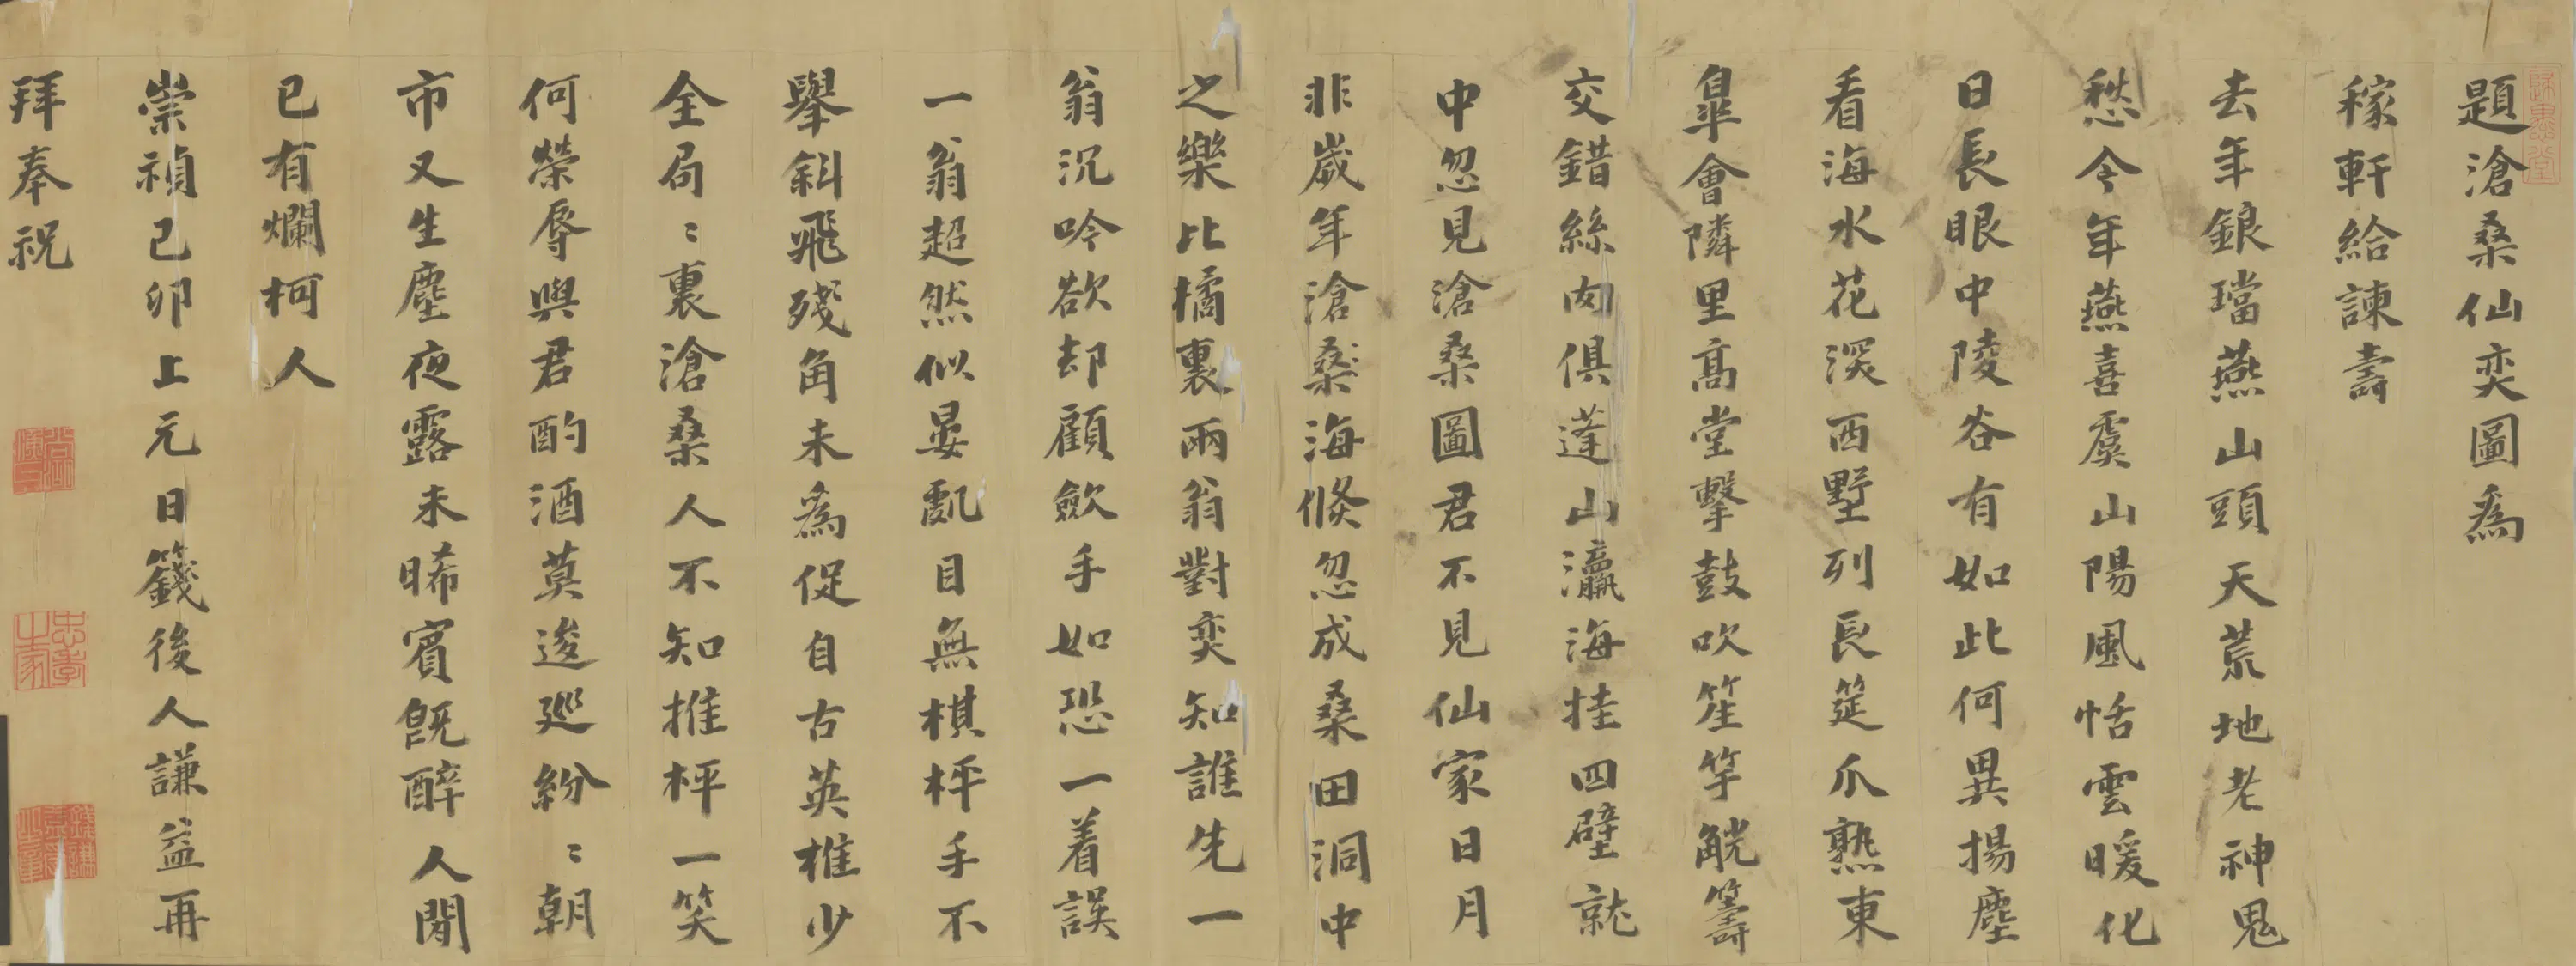 題滄桑仙奕圖為
稼軒給諫壽
去年鋃璫燕山頭天荒地老神鬼
愁今年燕喜虞山陽風恬雲暖化
日長眼中陵谷有如此何異揚塵
看海水花深西墅列長筵爪熟東
皐會隣里髙堂擊鼓吹笙竽觥籌
交錯絲肉俱蓬山瀛海挂四壁就
中忽見滄桑圖君不見仙家日月
非歲年滄桑海倏忽成桑田洞中
之樂比橘裏兩翁對奕知誰先一
翁沉吟欲却顧歛手如恐一着誤
一翁超然似晏亂目無棋枰手不
舉斜飛殘角未為促自古英雄少
全局〻裏滄桑人不知推枰一笑
何榮辱與君酌酒莫逡廵紛〻朝
市又生塵夜露未晞賓既醉人閒
已有爛柯人
崇禎己卯上元日籛後人謙益再
拜奉祝
忠孝之家